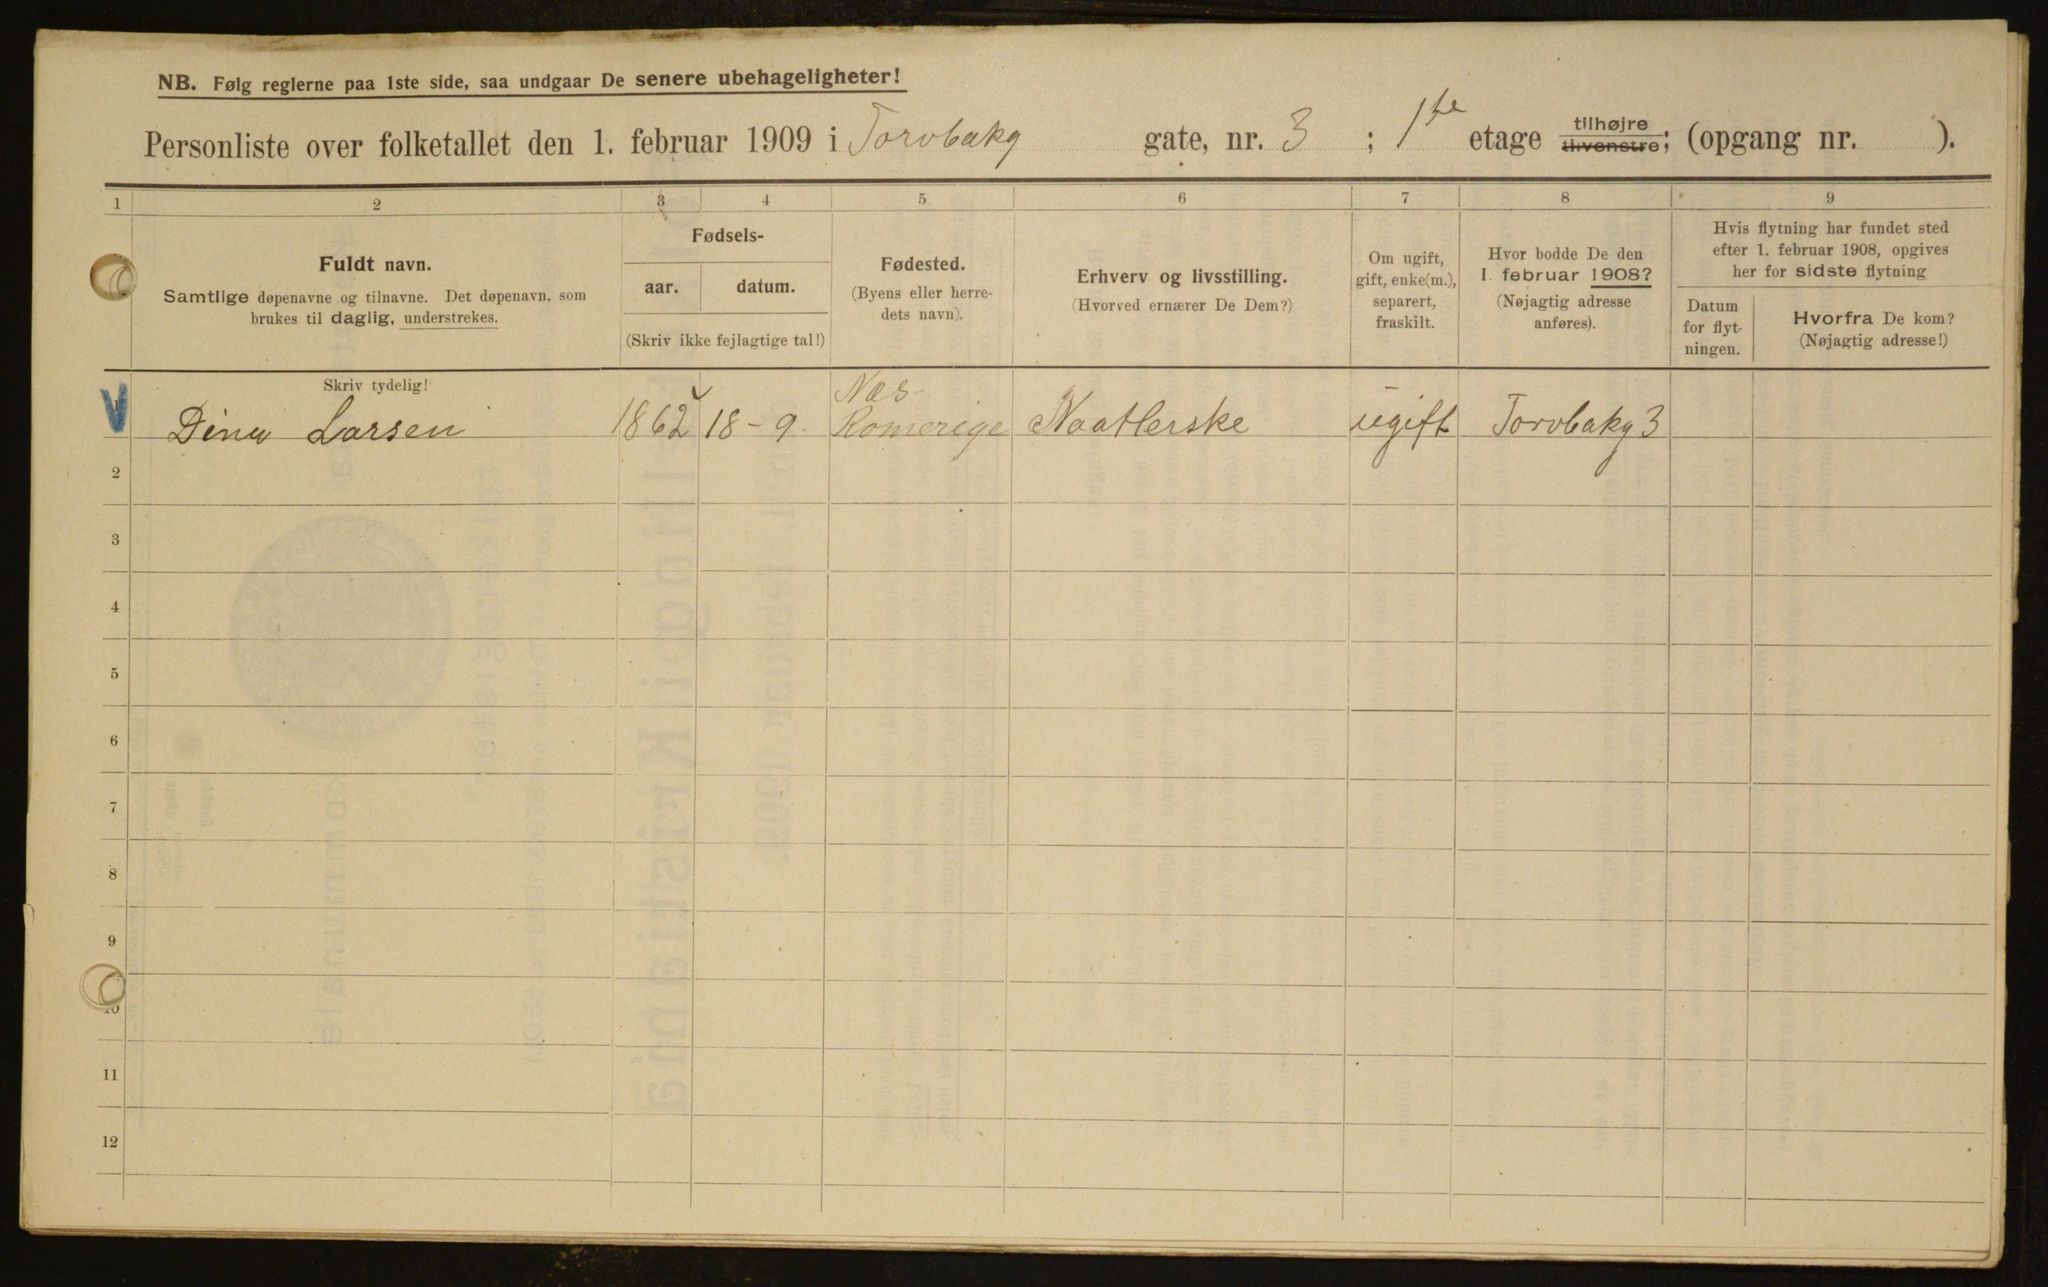 NB. Følg reglerne paa 1ste side, saa undgaar De senere ubehageligheter!
Personliste over folketallet den 1. februar 1909 i Torvbakg gate, nr. 3 ; 1ste etage tilhøjre tilvenstre; (opgang nr. ).
1 2 3 4 5 6 7 8 9
Fuldt navn.
Samtlige døpenavne og tilnavne. Det døpenavn, som
brukes til daglig, understrekes.
Fødsels-
aar. datum.
(Skriv ikke fejlagtige tal!)
Fødested.
(Byens eller herre-
dets navn).
Erhverv og livsstilling.
(Hvorved ernærer De Dem?)
Om ugift,
gift, enke(m.),
separert,
fraskilt.
Hvor bodde De den
1. februar 1908?
(Nøjagtig adresse
anføres).
Hvis flytning har fundet sted
efter 1. februar 1908, opgives
her for sidste flytning
Datum
for flyt-
ningen.
Hvorfra De kom?
(Nøjagtig adresse!)
Skriv tydelig!
Næs
Dina Larsen 1862 18-9. Romerige Naatlerske ugift Torvbakg 3
2
3
4
5
6
7
8
9
10
11
12